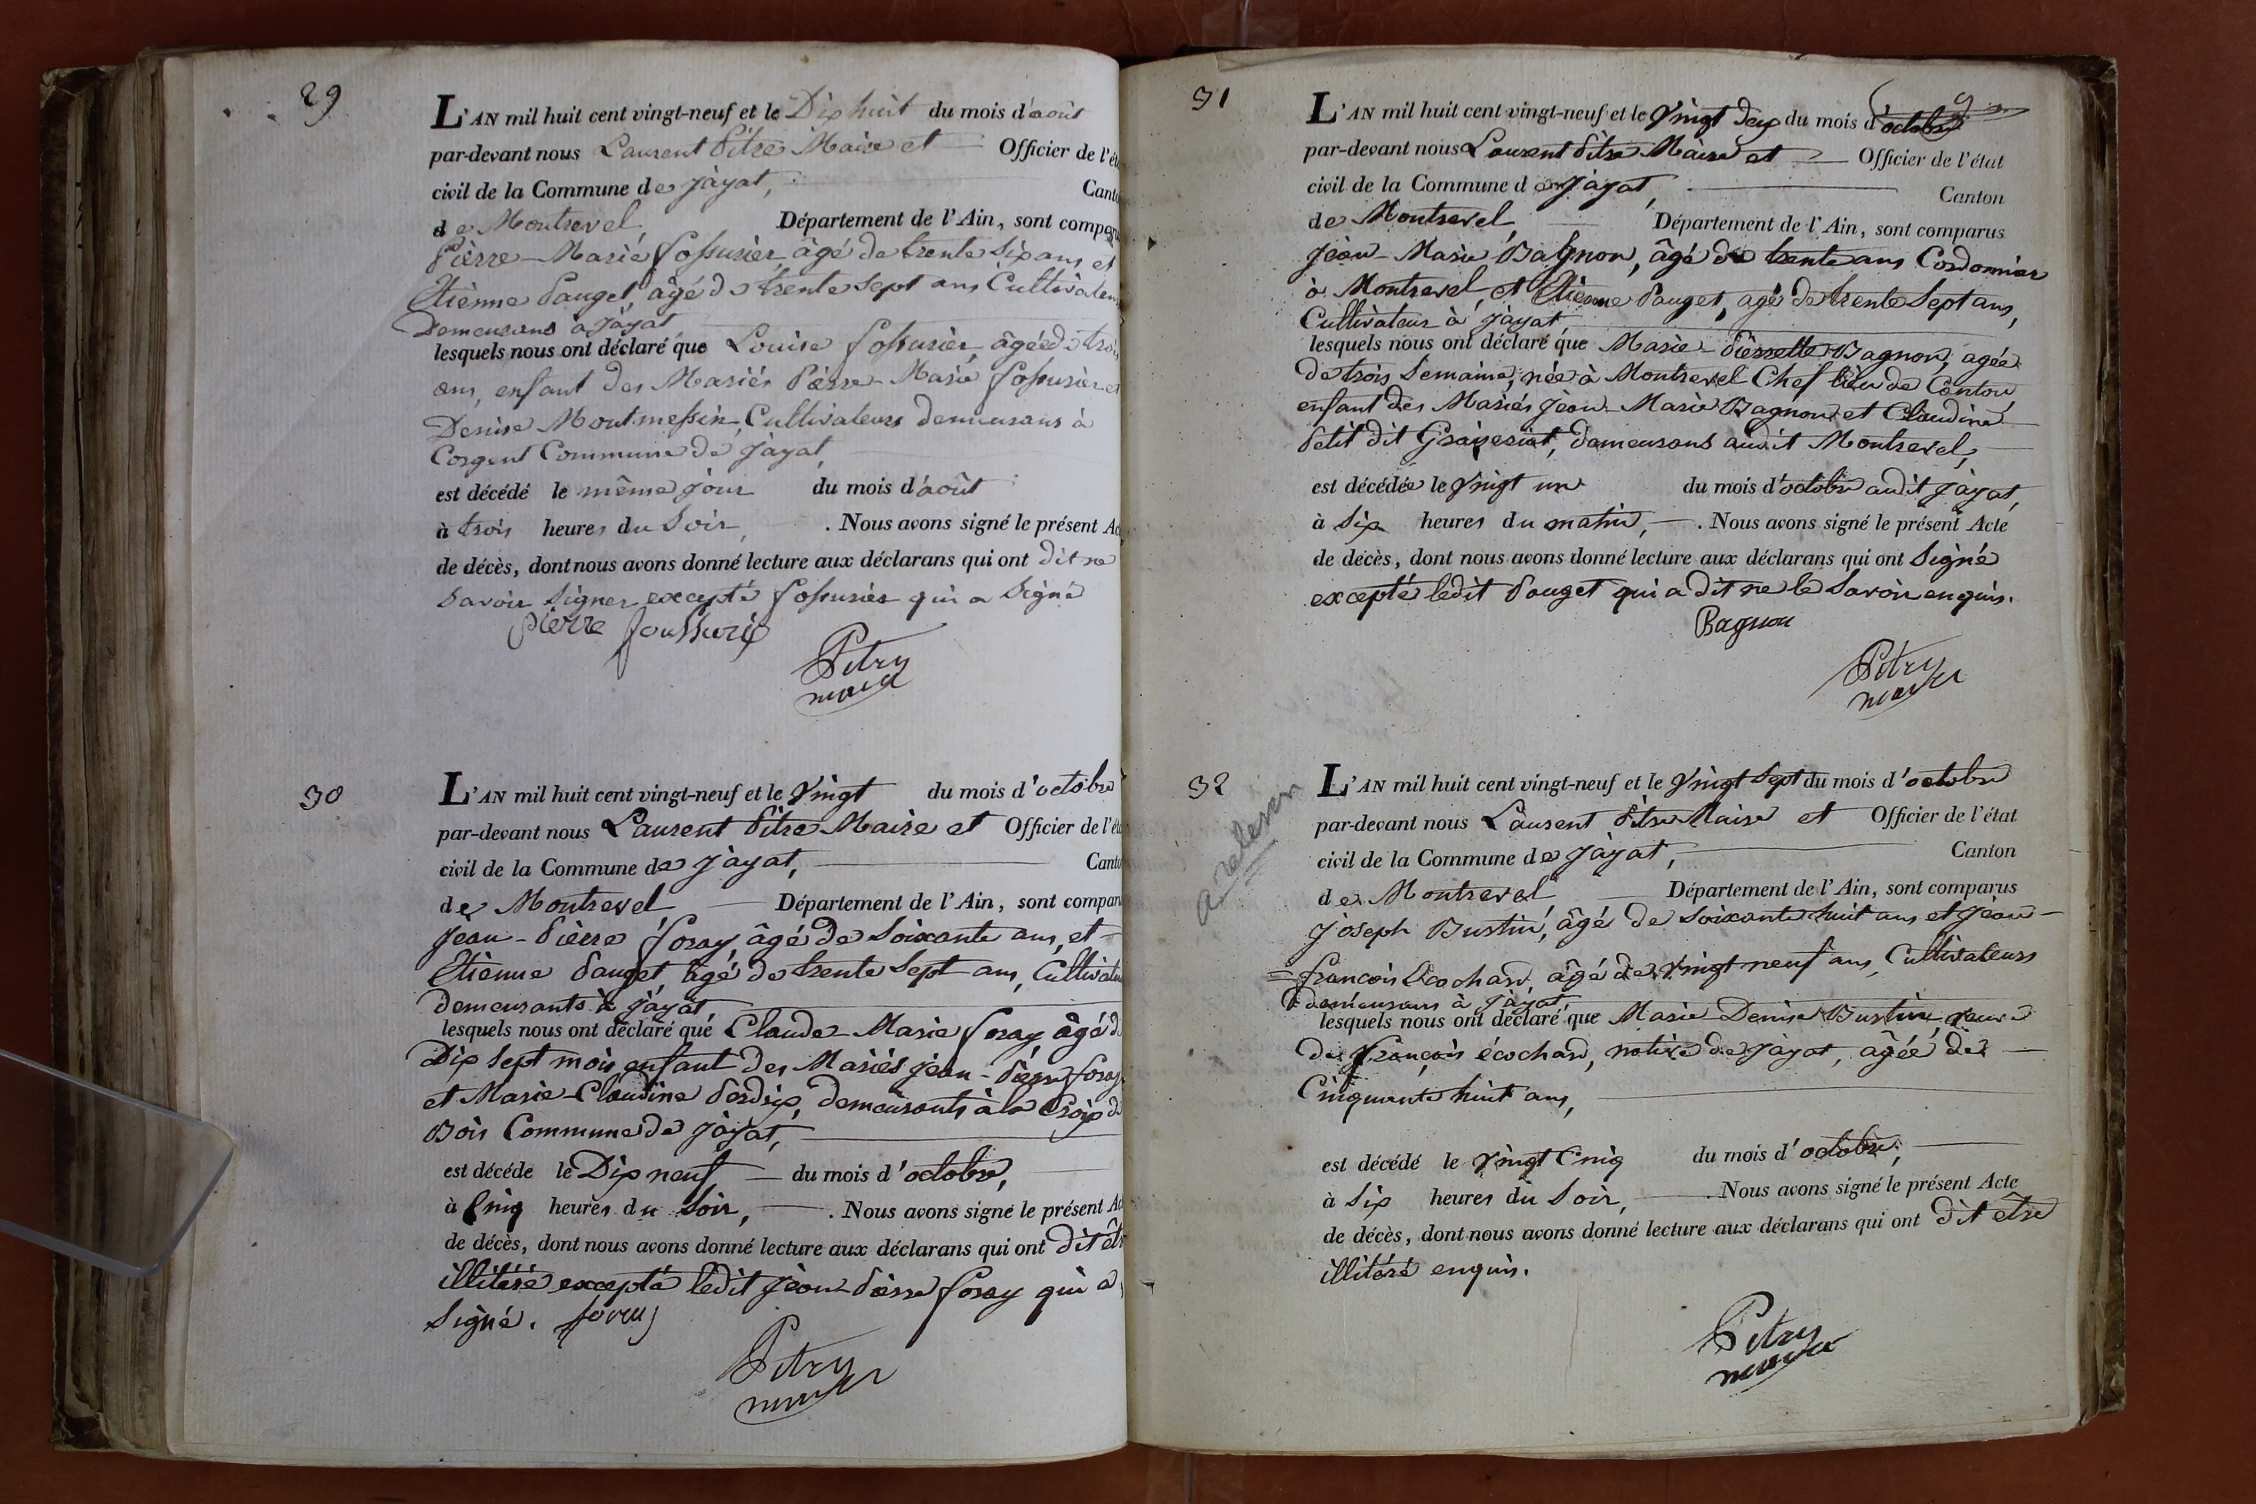 29
L'AN mil huit cent vingt-neuf et le Dix huit du mois d'août
par-devant nous Laurent Pitre Maire et Officier de l'ét
civil de la Commune de Jayat, Canto
de Montrevel Département de l'Ain, sont comparu
Pierre-Marie fossurier âgé de trente Six ans et
Etienne Pauget, âgé de trente sept ans Cultivateurs
Demeurans à Jayat
lesquels nous ont déclaré que Louise fossurier, âgée de trois
ans, enfant des Mariés Pierre-Marie fossurier et
Denise Montmessin, Cultivateurs demeurans à
Corgent Commune de Jayat,
est décédé le même jour du mois d'août
à trois heures du Soir, . Nous avons signé le présent Ac
de décès, dont nous avons donné lecture aux déclarans qui ont dit ne
Savoir Signer excepté fossurier qui a Signé
pierre
Pitre
maire
30
L'AN mil huit cent vingt-neuf et le Vingt du mois d'octobre
par-devant nous Laurent Pitre Maire et Officier de l'éta
civil de la Commune de Jayat, Canto
de Montrevel Département de l'Ain, sont compar
Jean-Pierre foray âgé de Soixante ans, et
Etienne Pauget, âgé de trente Sept ans, Cultivateurs
demeurants à Jayat
lesquels nous ont déclaré que Claude-Marie foray, âgé de
Dix Sept mois, enfant des Mariés Jean-Pierre foray
et Marie-Claudine Perdrix, demeurants à la Croix de
Bois Commune de Jayat,
est décéde le Dix neuf du mois d'octobre,
à Cinq heures du Soir, . Nous avons signé le présent Ac
de décès, dont nous avons donné lecture aux déclarans qui ont dit êtr
illitéré excepté ledit Jean-Pierre foray qui a
Signé. foray
Pitre
maire
31
L'AN mil huit cent vingt-neuf et le Vingt deux du mois d'octobre
par-devant nous Laurent Pitre Maire et Officier de l'état
civil de la Commune de Jayat, Canton
de Montrevel Département de l'Ain, sont comparus
Jean-Marie Bagnon, âgé de trente ans Cordonnier
à Montrevel, et Etienne Pauget, agé de trente Sept ans,
Cultivateur à Jayat
lesquels nous ont déclaré que Marie-Pierrette Bagnon, agée
de trois Semaine, née à Montrevel Chef lieu de Canton,
enfant des Mariés Jean-Marie Bagnon et Claudine
Petit dit demeurans audit Montrevel,
est décédée le Vingt un du mois d'octobre audit Jayat,
à Six heures du matin, . Nous avons signé le présent Acte
de décès, dont nous avons donné lecture aux déclarans qui ont Signé
excepté ledit Pauget qui a dit ne le Savoir enquis.
Bagnon
Pitre
maire
32
L'AN mil huit cent vingt-neuf et le Vingt Sept du mois d'octobre
par-devant nous Laurent Pitre Maire et Officier de l'état
civil de la Commune de Jayat, Canton
de Montrevel Département de l'Ain, sont comparus
Joseph Bustin, âgé de Soixante huit ans et Jean-
=françois Ecochard, âgé de Vingt neuf ans, Cultivateurs
demeurans à Jayat,
lesquels nous ont déclaré que Marie Denise Bustin, veuve
de François écochard, native de Jayat, âgéé de
Cinquante huit ans,
est décédé le Vingt Cinq du mois d'octobre,
à Six heures du Soir, . Nous avons signé le présent Acte
de décès, dont nous avons donné lecture aux déclarans qui ont dit être
illitéré enquis.
Pitre
maire